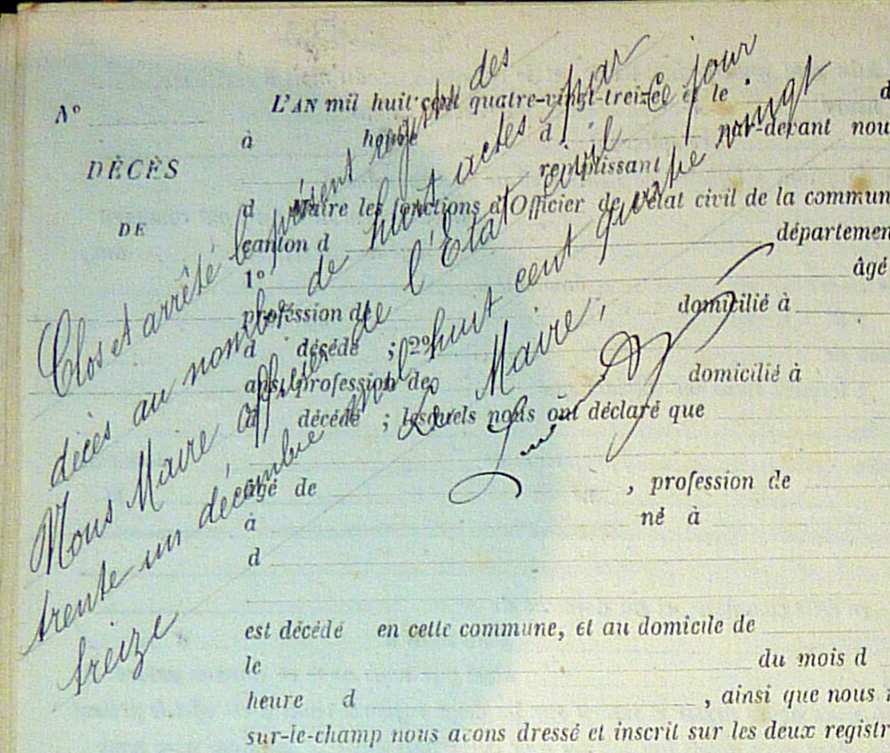 N°
L'AN mil huit cent quatre-vingt-treize et le d
à heure d par-devant nou
DÉCÈS
remplissant
d Maire les fonctions d'Officier de l'état civil de la commun
DE
canton d départemen
1° âgé
profession de domicilié à
d décédé ; 2°
ans, profession de domicilié à
d décédé ; lesquels nous ont déclaré que
âgé de , profession de
à né à
d
est décédé en cette commune, et au domicile de
le du mois d
heure d , ainsi que nous
sur-le-champ nous avons dressé et inscrit sur les deux registr
Clos et arrêté le présent registre des
décès au nombre de huit actes par
Nous Maire officier de l'Etat civil ce jour
trente un décembre mil huit cent quatre vingt
treize
Le Maire,